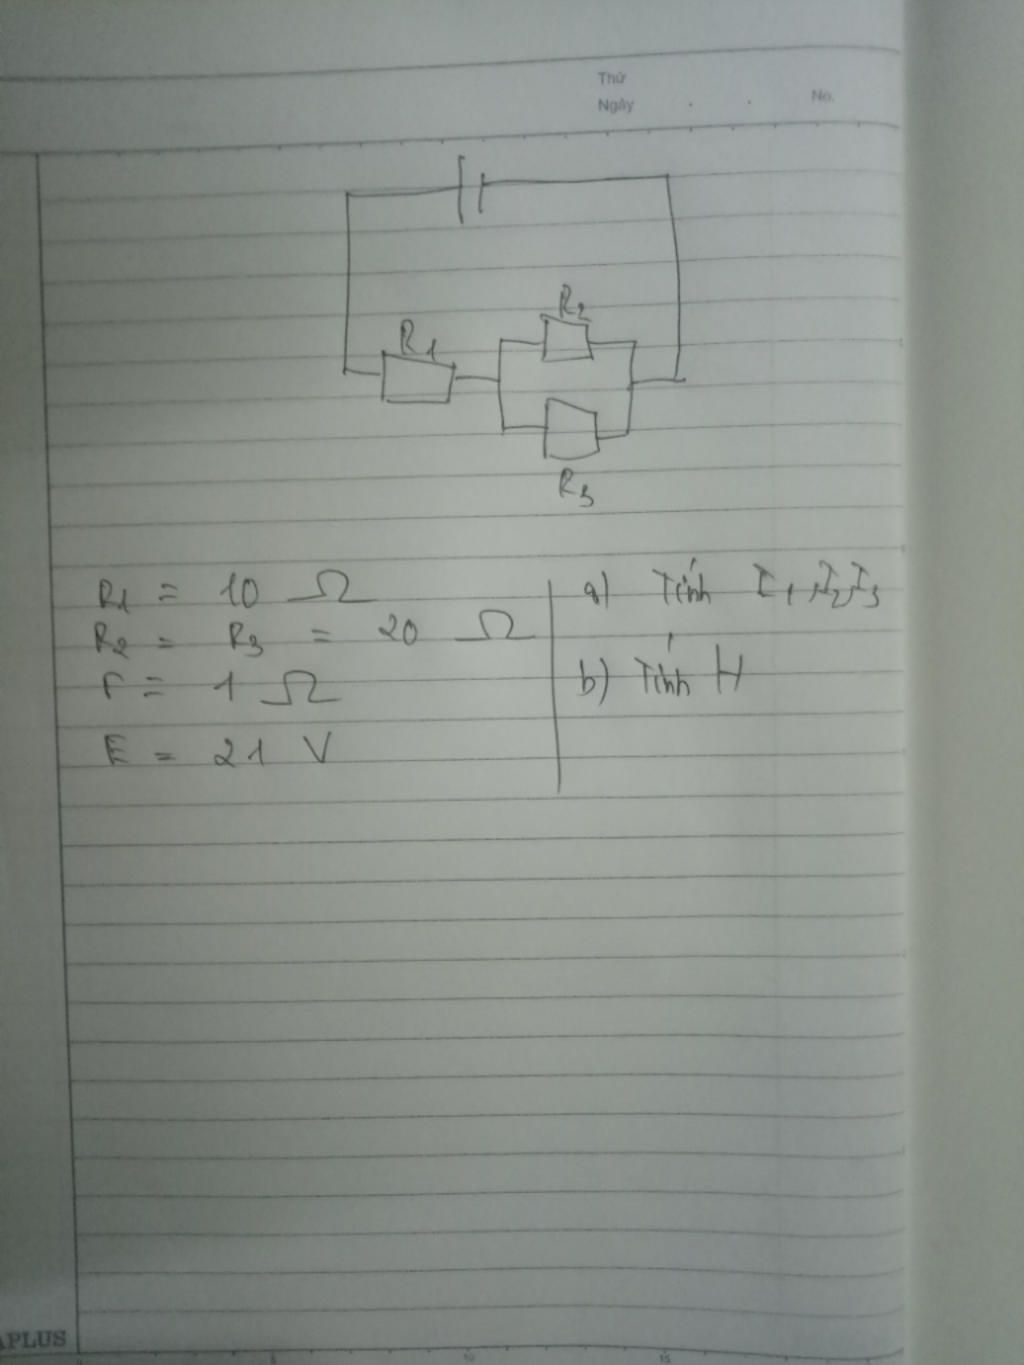 Thứ
Ngày . . No.
R2
R1
R3
R1 = 10 Ω
R2 = R3 = 20 Ω
r = 1 Ω
E = 21 V
a) Tính I1, I2, I3
b) Tính H
APLUS
5 10 15